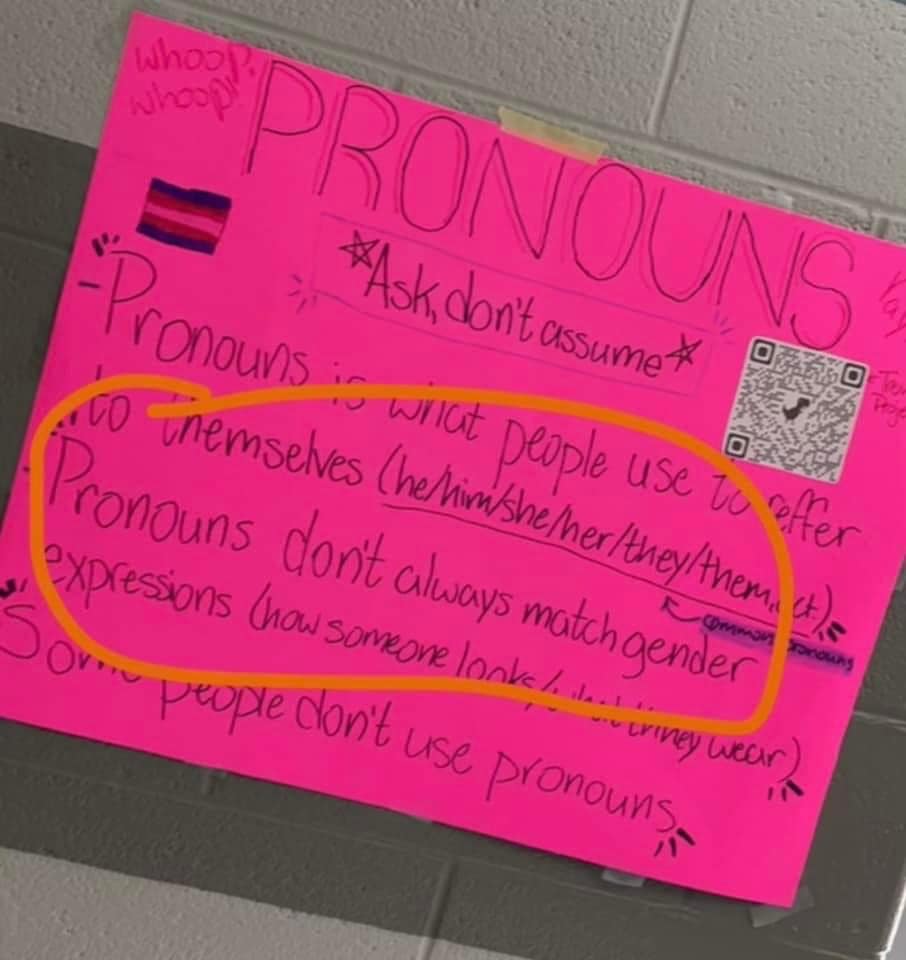 whoop!
whoop!
PRONOUNS
*Ask, don't assume*
-Pronouns is what people use to reffer
to themselves (he/him/she/her/they/them, ect.)
common pronouns
-Pronouns don't always match gender
expressions (how someone looks/what thney wear)
Some people don't use pronouns